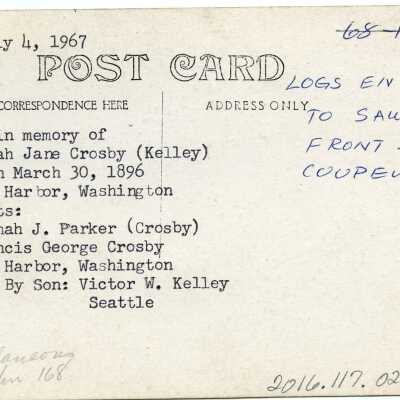 y 4, 1967
POST CARD
CORRESPONDENCE HERE
ADDRESS ONLY
in memory of
ah Jane Crosby (Kelley)
n March 30, 1896
Harbor, Washington
ts:
nah J. Parker (Crosby)
ncis George Crosby
Harbor, Washington
By Son: Victor W. Kelley
Seattle
68-1
LOGS EN
TO SAW
FRONT
COUPEV
laneous
168
2016.117.02